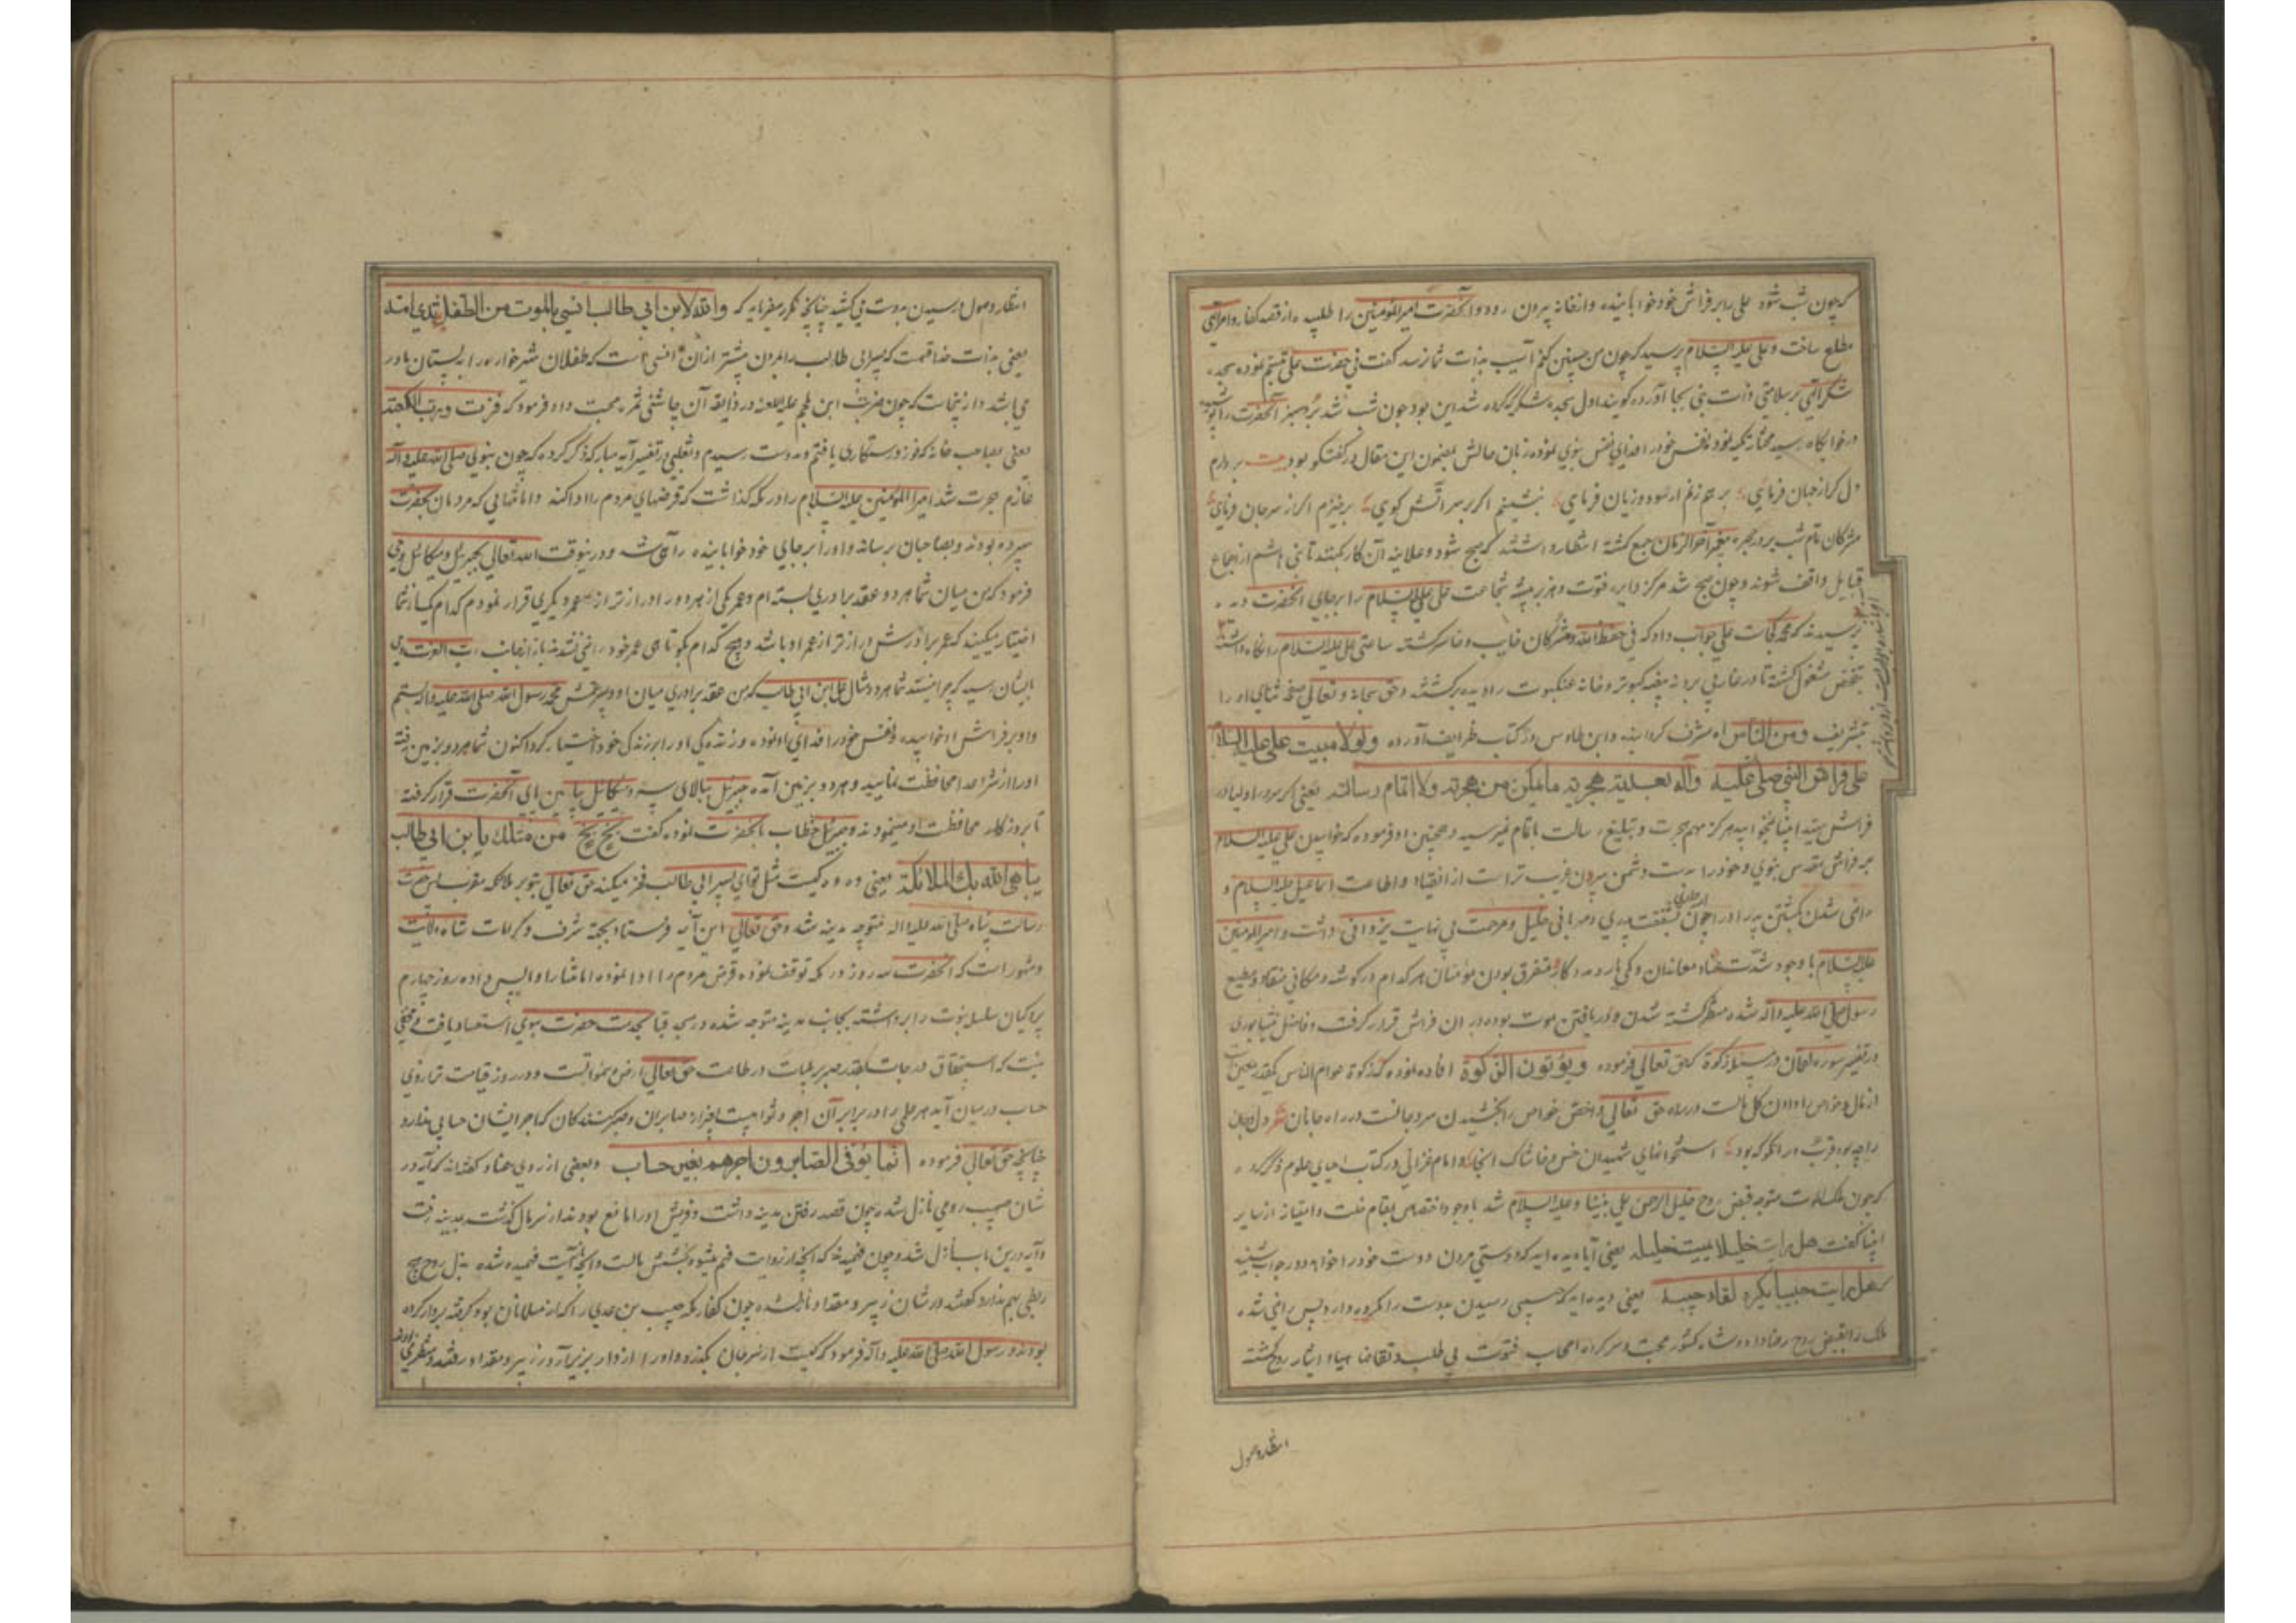 که چون شب شود علی را بر فراش خود خوابانیده و از خانه بیرون رود و آنحضرت امیر المؤمنین را طلبیده از قصد کفار و امر الهی
مطلع ساخت و علی علیه السلام پرسید که چون من چنین کنم آسیب بذات شما نرسد گفت نی حضرت علی تبسم نموده سجده
شکر الهی بر سلامتی ذات نبی بجا آورده گویند اول سجده شکر که کرده شد این بود چون شب شد برد سبز آنحضرت را پوشیده
در خوابگاه سید مختار تکیه نمود و نفس خود را فدای نفس نبوی نموده زبان حالش بمضمون این مقال در گفتگو بود بیت بردارم
دل گر از جهان فرمایی بر هم زنم ار سود و زیان فرمایی بنشینم اگر بر سر آتش گویی برخیزم اگر از سر جان فرمایی
مشرکان تمام شب بر در حجره پیغمبر آخر الزمان جمع گشته انتظار داشتند که صبح شود و علانیه آن کار کنند تا بنی هاشم از اجماع
قبایل واقف شوند و چون صبح شد مرکز دایره فتوت و هزبر بیشه شجاعت علی علیه السلام را بر جای آنحضرت دیده
پرسیدند که محمد کجاست علی جواب داد که فی حفظ الله و مشرکان خایب و خاسر گشته ساعتی علی علیه السلام را نگاه داشته
بتفحص مشغول گشته تا در غار پی برده بیضه کبوتر و خانه عنکبوت را دیده برگشتند و حق سبحانه و تعالی صفحه ثنای او را
بتشریف ومن الناس اه مشرف گردانیده و ابن طاوس در کتاب طرایف آورده ولولا مبیت علی علیه السلام
علی فراش النبی صلی علیه وآله بعد لیلة هجرته ما تمکن من هجرته ولا اتمام رسالته یعنی اگر سرور اولیا در
فراش سید انبیا نمیخوابید هرگز مهم هجرت و تبلیغ رسالت باتمام نمیرسید و همچنین او فرموده که خوابیدن علی علیه السلام
بر فراش مقدس نبوی و خود را بدست دشمن سپردن غریب تر است از انقیاد و اطاعت اسماعیل علیه السلام و
راضی شدن بکشتن پدر او را چون شفقت پدری و مهربانی خلیل و مرحمت بی نهایت یزدانی داشت و امیر المؤمنین
علیه السلام با وجود شدت عناد معاندان و کمی یار و مددکار و متفرق بودن مؤمنان هر کدام در گوشه و مکانی منقاد و مطیع
رسول صلی الله علیه وآله شده منتظر کشته شدن و دریافتن موت بوده در آن فراش قرار گرفت و فاضل نیشابوری
در تفسیر سوره لقمان در مسئله زکوة که حق تعالی فرموده ویؤتون الزکوة افاده نموده که زکوة عوام الناس بقدر معین است
از مال و خواص را دادن کل مالست در راه حق تعالی و اخص خواص را بخشیدن سر و جانست در راه جانان شعر
راچه بود قرب اگر که بود استخوانهای شهیدان خس و خاشاک اینجا و امام غزالی در کتاب احیای علوم ذکر کرده
که چون ملک الموت متوجه قبض روح خلیل الرحمن علی نبینا و علیه السلام شد با وجود اختصاص بمقام خلت و امتیاز از سایر
انبیا گفت هل رایت خلیلا یمیت خلیله یعنی آیا دیده اید که دوستی مردن دوست خود را خواهد و در جواب شنید
هل رایت حبیبا یکره لقاء حبیبه یعنی دیده اید که حبیبی رسیدن بدوست را مکروه دارد پس راضی شده
ملک را بقبض روح رضا داد و شاه کشور محبت و سرکرده اصحاب فتوت بی طلب و تقاضا مهیا و ایثار روح گشته
انتظار وصول
انتظار وصول و رسیدن بدوست می کشید چنانچه مکرر میفرماید که والله لابن ابی طالب انس بالموت من الطفل بثدی امه
یعنی بذات خدا قسمست که پسر ابی طالب را بمردن بیشتر از آن انس است که طفلان شیرخواره را به پستان مادر
می باشد و از ینجاست که چون ضربت ابن ملجم علیه اللعنه در ذایقه آن چاشنی ثمره محبت داد فرمود که فزت ورب الکعبه
یعنی بصاحب خانه که فوز و رستگاری یافتم و بدوست رسیدم و ثعلبی در تفسیر آیه مبارکه ذکر کرده که چون نبوی صلی الله علیه وآله
عازم هجرت شد امیر المؤمنین علیه السلام را در مکه گذاشت که قرضهای مردم را ادا کند و امانتهایی که مردمان بحضرت
سپرده بودند و بصاحبان رساند و او را بر جای خود خوابانیده راهی شد و درینوقت الله تعالی بجبرئیل و میکائیل وحی
فرمود که من میان شما هر دو عقد برادری بسته ام و عمر یکی از هر دو را دراز تر از عمر دیگری قرار نمودم کدام یک از شما
اختیار میکنید که عمر برادرش دراز تر از عمر او باشد و هیچ کدام بکوتاهی عمر خود راضی نشدند باز از جانب رب العزت وحی
بایشان رسید که چرا نیستید شما هر دو مثال علی ابن ابی طالب که من عقد برادری میان او و پیغمبرش محمد رسول الله صلی الله علیه وآله بستم
و او بر فراش او خوابیده و نفس خود را فدای او نموده و زندگی او را بر زندگی خود اختیار کرد اکنون شما هر دو بزمین رفته
او را از شر اعدا محافظت نمایید و هر دو بزمین آمده جبرئیل ببالای سر و میکائیل پایین پای آنحضرت قرار گرفته
تا بروز کار محافظت او مینمودند و جبرئیل خطاب بآنحضرت نموده گفت بخ بخ من مثلک یا بن ابی طالب
یباهی الله بک الملائکة یعنی وه وه کیست مثل تو ای پسر ابی طالب فخر میکند حق تعالی بتو بر ملائکه مقرب پس حضرت
رسالت پناه صلی الله علیه واله متوجه مدینه شد و حق تعالی این آیه فرستاد بجهة شرف و کرامات شاه ولایت
و مشهور است که آنحضرت سه روز در مکه توقف نموده قرض مردم را ادا نموده امانتها را واپس داده روز چهارم
پرد کیان سلسله نبوت را برداشته بجانب مدینه متوجه شده در مسجد قبا بخدمت حضرت نبوی استسعاد یافت و مخفی
نیست که استحقاق درجات بقدر صبر بر بلیات در طاعت حق تعالی ارض و سموات است و در روز قیامت ترازوی
حساب در میان آید هر عملی را در برابر آن اجر و ثوابیست بغیر از صابران و صبر کنندگان که اجر ایشان حسابی ندارد
چنانچه حق تعالی فرموده انما یوفی الصابرون اجرهم بغیر حساب و بعضی از روی عناد گفته اند که آیه در
شان صهیب رومی نازل شد چون قصد رفتن مدینه داشت و قریش او را مانع بودند از سر مال گذشت بمدینه رفت
و آیه درین باب نازل شد و چون فهمیدند که آنچه از روایت فهم میشود بخشش مالست و آنچه از آیت فهمیده شده بذل روح هیچ
ربطی بهم ندارد گفتند در شان زبیر و مقداد نازل شده چون کفار مکه خبیب بن عدی را که از مسلمانان بود گرفته بر دار کرده
بودند و رسول الله صلی الله علیه وآله فرمود که کیست از سر جان بگذرد و او را از دار بزیر آرد زبیر و مقداد رفتند و